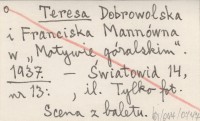 Teresa Dobrowolska
i Franciska Mannówna
w „Motywie góralskim".
1937. – Światowid, 14,
nr 13: , il. Tylko fot.
Scena z baletu.